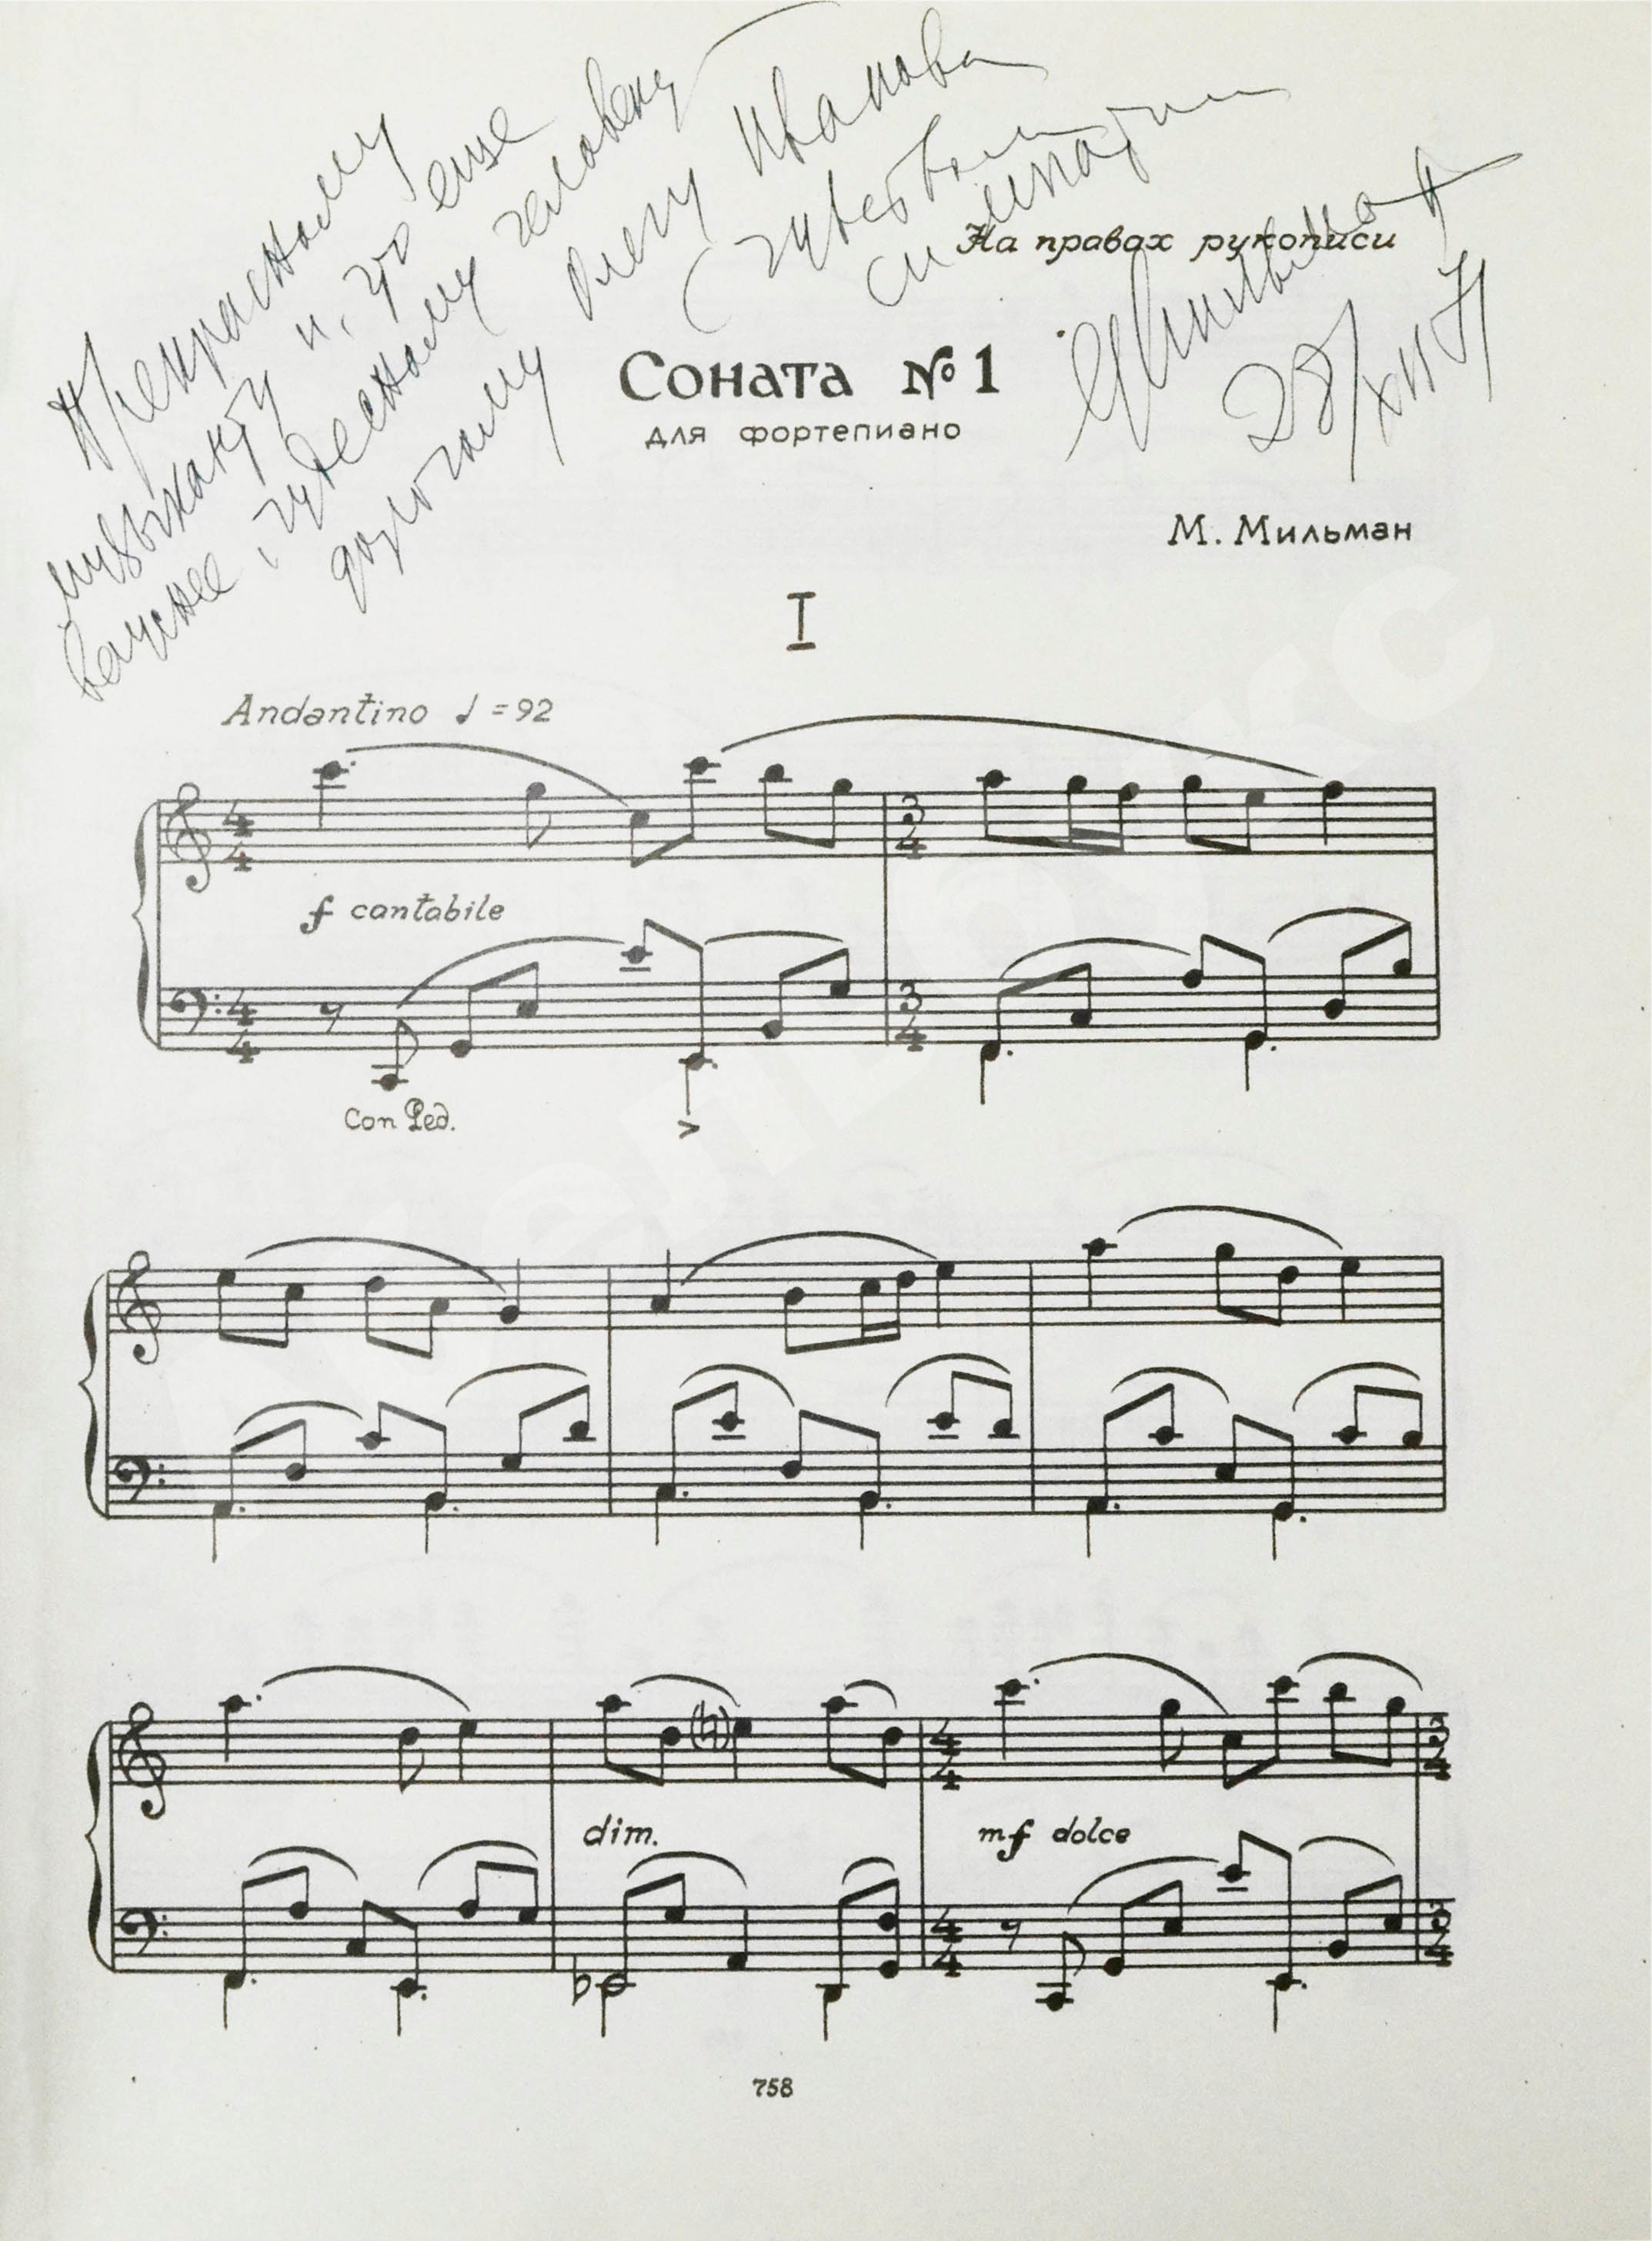 Прекрасному
музыканту и, что еще
важнее, чудесному человеку
дорогому Олегу Иванову
(с чувством
симпатии
ММильман
28/XII 71
На правах рукописи
Соната №1
для фортепиано
М. Мильман
I
Andantino ♩ = 92
4 4
3 4
f cantabile
4 4
3 4
Con Ped.
dim.
4 4
mf dolce
3 4
4 4
3 4
758